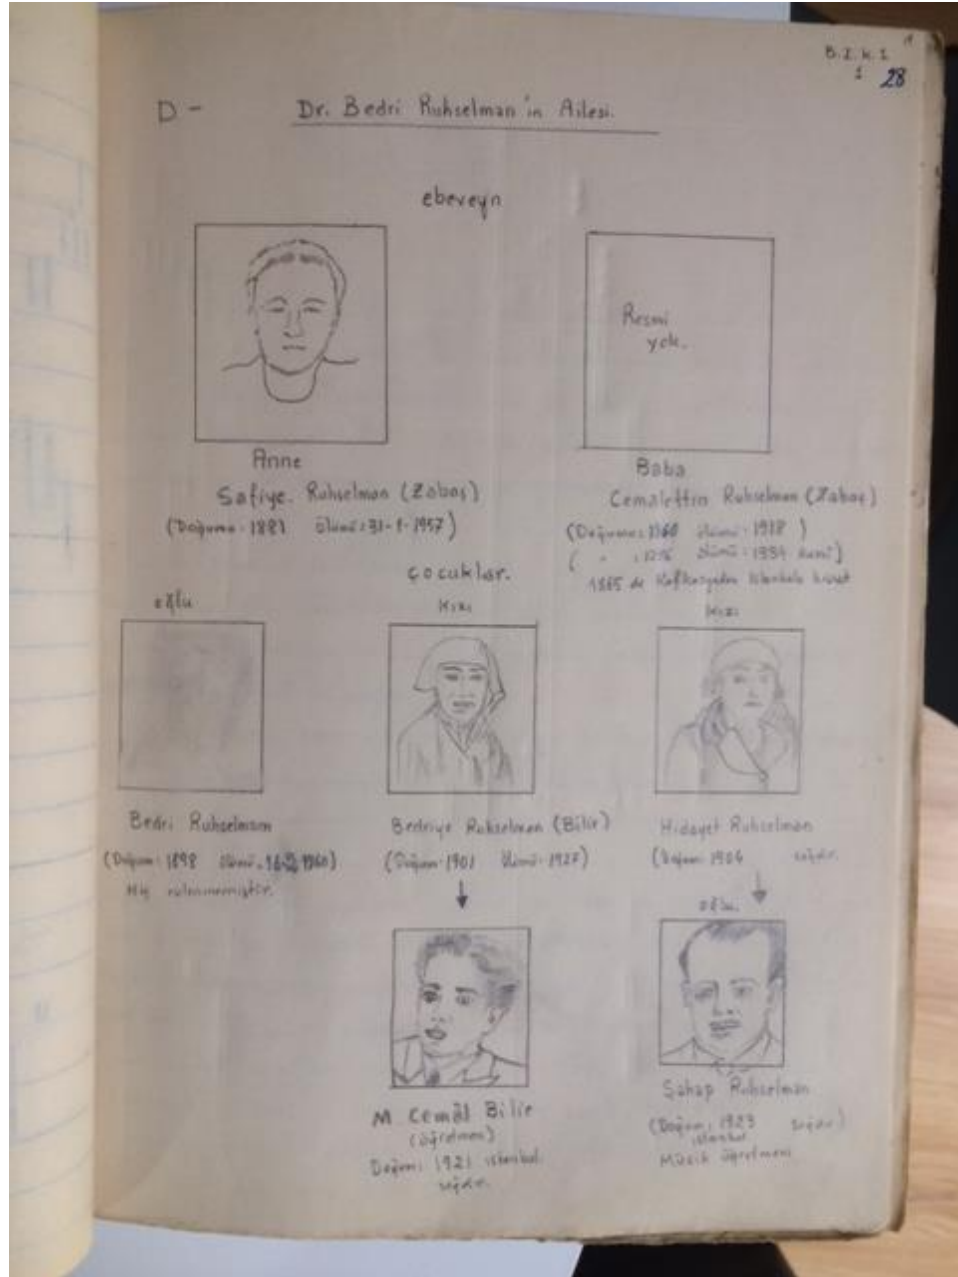 B.I.K.I
1 28
D - Dr. Bedri Ruhselman'in Ailesi.
ebeveyn
Resmi
yok.
Anne
Safiye. Ruhselman (Zabaş)
(Doğumu: 1881 ölümü: 31-1-1957)
Baba
Cemalettin Ruhselman (Zabaş)
(Doğumu: 1860 ölümü: 1918)
ölümü: 1334
1865 de Kafkasyadan Istanbula
çocuklar.
oğlu
kızı
kızı
Bedri Ruhselman
(Doğum: 1898 ölümü. 1960)
Hiç evlenmemiştir.
Bedriye Ruhselman (Bilir)
(Doğum: 1901 ölümü: 1927)
Hidayet Ruhselman
(Doğum: 1904 sağdır.
oğlu.
M Cemâl Bilir
(öğretmen)
Doğum: 1921 istanbul.
sağdır.
Şahap Ruhselman
(Doğum: 1923 sağdır)
istanbul
Müzik öğretmeni